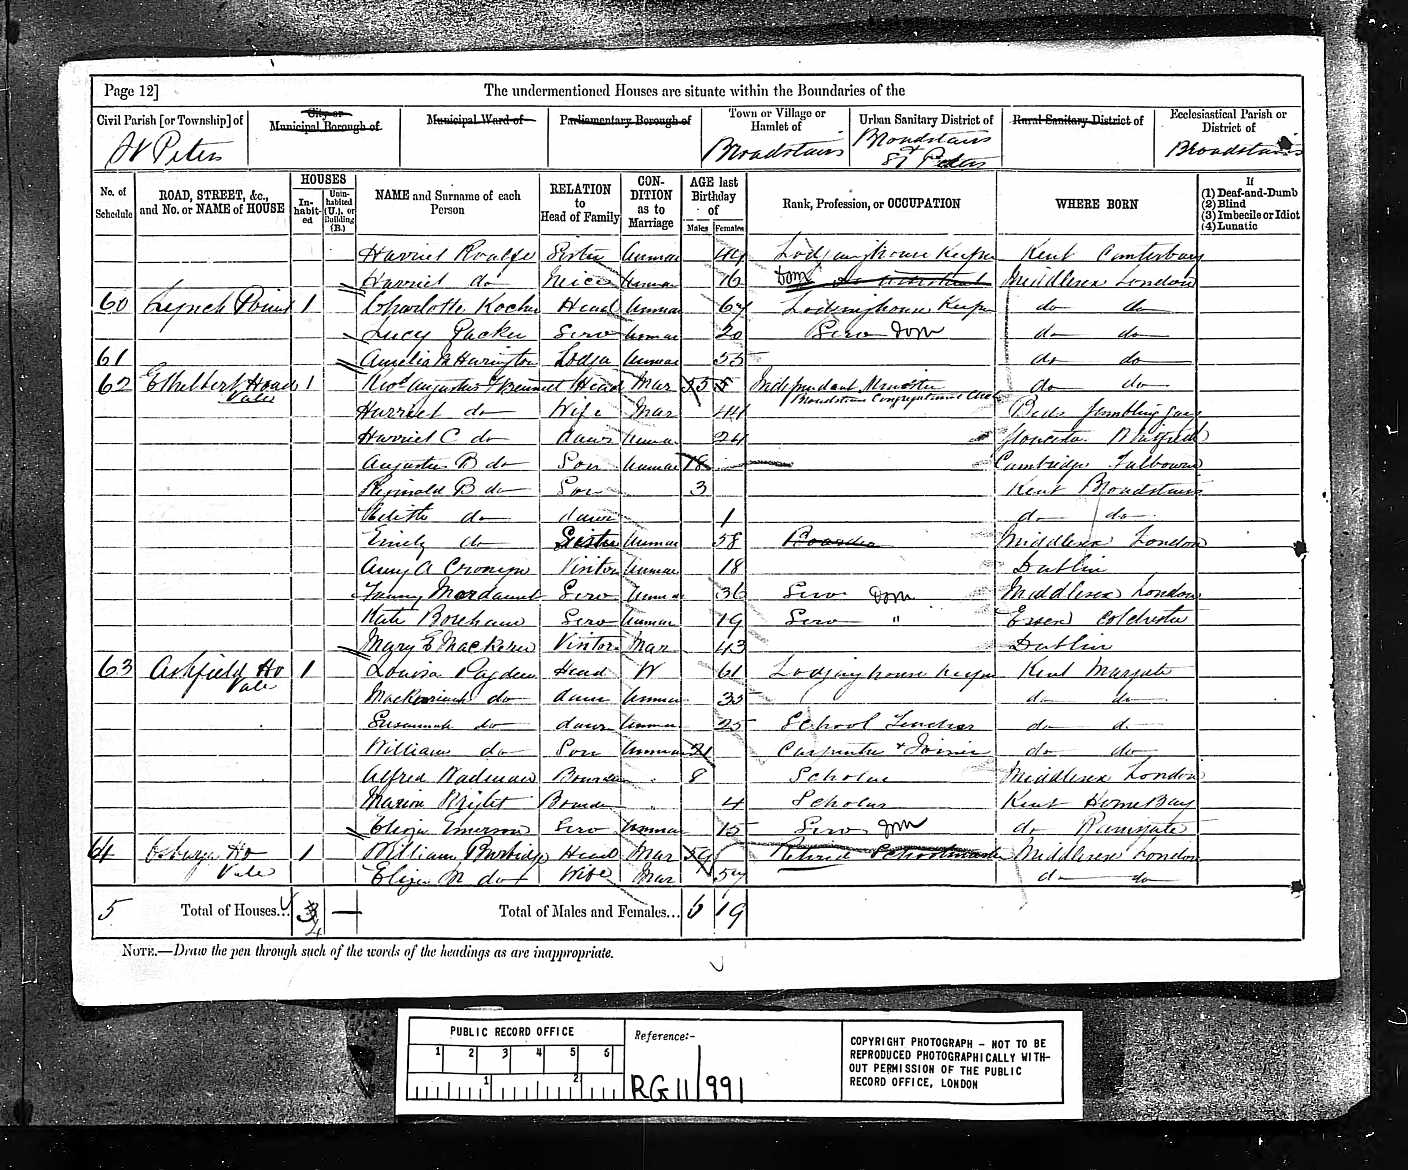 Page 12]
The undermentioned Houses are situate within the Boundaries of the
Civil Parish [or Township] of
City or Municipal Borough of
Municipal Ward of
Parliamentary Borough of
Town or Village or Hamlet of
Urban Sanitary District of
Rural Sanitary District of
Ecclesiastical Parish or District of
St Peters
Broadstairs
Broadstairs & St Peters
Broadstairs
No. of Schedule
ROAD, STREET, &c., and No. or NAME of HOUSE
HOUSES
In-habit-ed
Unin-habited (U.), or Building (B.)
NAME and Surname of each Person
RELATION to Head of Family
CON-DITION as to Marriage
AGE last Birthday of
Males
Females
Rank, Profession, or OCCUPATION
WHERE BORN
If
(1) Deaf-and-Dumb
(2) Blind
(3) Imbecile or Idiot
(4) Lunatic
Harriet Roalfe Sister Unmar 44 Lodginghouse Keeper Kent Canterbury
Harriet do Neice Unmar 16 Dom Middlesex London
60 Lynch Point 1 Charlotte Head Unmar 67 Lodginghouse Keeper do do
Lucy Packer Serv Unmar 20 Serv Dom do do
61 Amelia M Harington Lodger Unmar 55 do do
62 Ethelbert House Vale 1 Revd Augustus F Bennett Head Mar 55 Independent Minister Broadstairs Congregational do do
Harriet do Wife Mar 44 Beds
Harriet C do daur Unmar 24 Gloucester
Augustus B do Son Unmar 18 Cambridge Fulbourn
Reginald B do Son 3 Kent Broadstairs
Edith do daur 1 do do
Emily do Sister Unmar 58 Boarder Middlesex London
Amy A Cronyn Visitor Unmar 18 Dublin
Fanny Mordaunt Serv Unmar 36 Serv Dom Middlesex London
Kate Boreham Serv Unmar 19 Serv " Essex Colchester
Mary E Visitor Mar 43 Dublin
63 Ashfield Ho Vale 1 Louisa Pagden Head W 61 Lodginghouse Keeper Kent Margate
do daur Unmar 35 do do
Susannah do daur Unmar 25 School Teacher do do
William do Son Unmar 21 Carpenter & Joiner do do
Alfred Boarder 8 Scholar Middlesex London
Marion Boarder 4 Scholar Kent Herne Bay
Eliza Emerson Serv Unmar 15 Serv Dom do Ramsgate
64 Osborne Ho Vale 1 William Burbidge Head Mar 59 Retired Schoolmaster Middlesex London
Eliza M do Wife Mar 57 do do
5 Total of Houses... 3 4 — Total of Males and Females... 6 19
NOTE.—Draw the pen through such of the words of the headings as are inappropriate.
PUBLIC RECORD OFFICE
1 2 3 4 5 6
1 2
Reference:-
RG 11/991
COPYRIGHT PHOTOGRAPH - NOT TO BE
REPRODUCED PHOTOGRAPHICALLY WITH-
OUT PERMISSION OF THE PUBLIC
RECORD OFFICE, LONDON